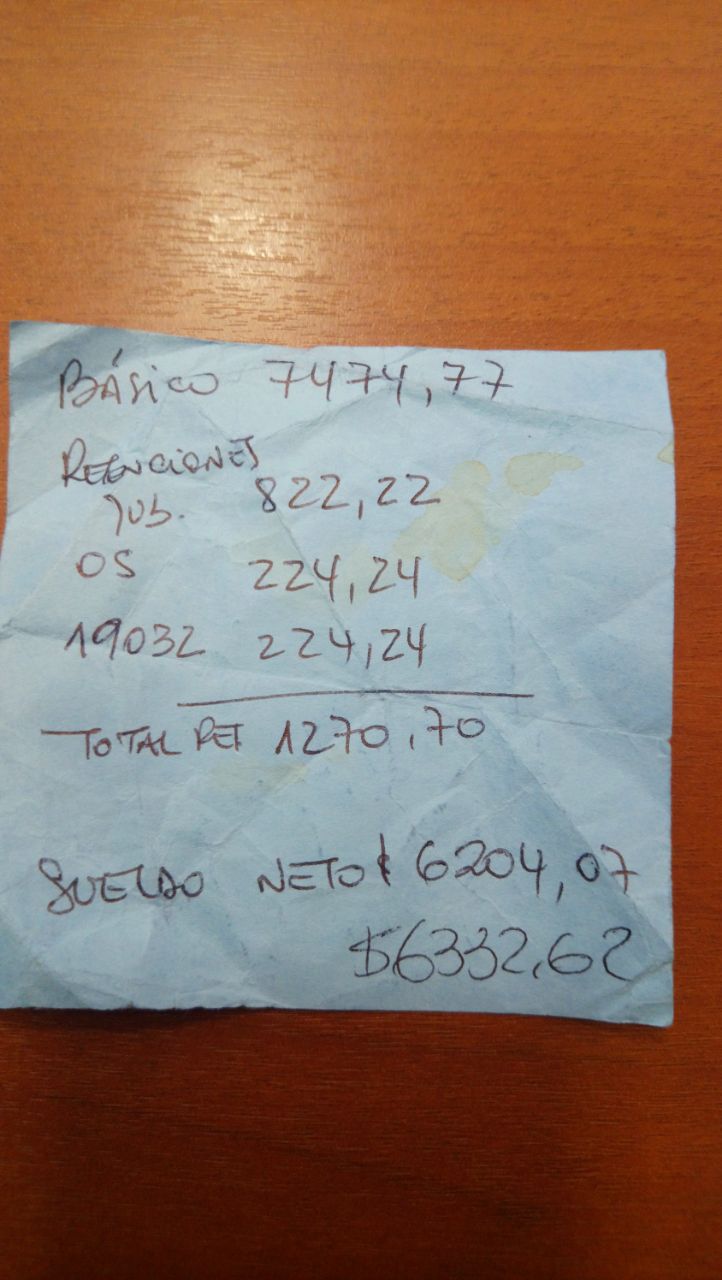 BÁSICO 7474,77
RETENCIONES
JUB. 822,22
OS 224,24
19032 224,24
TOTAL RET 1270,70
SUELDO NETO $ 6204,07
$6332,62